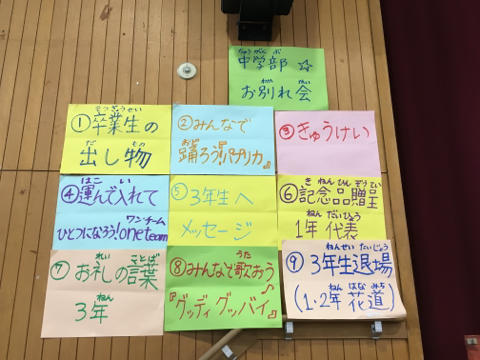 中学部 ☆
お別れ会
①卒業生の
出し物
②みんなで
踊ろう!『パプリカ』
③きゅうけい
④運んで入れて
ひとつになろう!one team
⑤3年生へ
メッセージ
⑥記念品贈呈
1年 代表
⑦お礼の言葉
3年
⑧みんなで歌おう♪
『グッディグッバイ』
⑨3年生退場
(1・2年 花道)